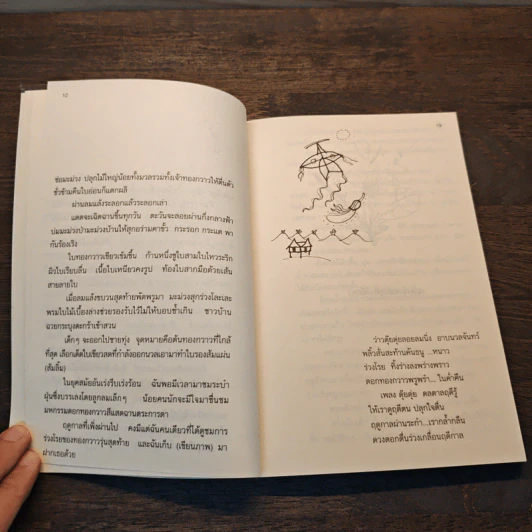 12
ช่อมะม่วง ปลุกไม้ใหญ่น้อยทั้งมวลรวมทั้งเจ้าทองกวาวให้ตื่นตัว
ชั่วข้ามคืนใบอ่อนก็แตกผลิ
ผ่านลมแล้งระลอกแล้วระลอกเล่า
แดดจะเฉิดฉานขึ้นทุกวัน ตะวันจะลอยผ่านกึ่งกลางฟ้า
บ่มมะม่วงป่ามะม่วงบ้านให้สุกอร่ามคาขั้ว กระรอก กระแต พา
กันร้องเริง
ใบทองกวาวเขียวเข้มขึ้น ก้านหนึ่งชูใบสามใบไหวระริก
ผิวใบเรียบลื่น เนื้อใบเหนียวคงรูป ท้องใบสากมือด้วยเส้น
สายลายใบ
เมื่อลมแล้งขบวนสุดท้ายพัดพรูมา มะม่วงสุกร่วงโละเละ
พรมใบไม้เบื้องล่างช่วยรองรับไว้มิให้บอบช้ำเกิน ชาวบ้าน
ฉวยกระบุงตะกร้าเข้าสวน
เด็กๆ จะออกไปชายทุ่ง จุดหมายคือต้นทองกวาวที่ใกล้
ที่สุด เลือกเด็ดใบเขียวสดที่กำลังออกนวลเอามาทำใบรองส้มแผ่น
(ส้มลิ้ม)
ในยุคสมัยอันเร่งรีบเร่งร้อน ฉันพอมีเวลามาชมระบำ
ฝูงซึ่งบรรเลงโดยลูกลมเล็กๆ น้อยคนนักจะมีใจมาชื่นชม
มหกรรมดอกทองกวาวสีแสดฉานตระการตา
ฤดูกาลที่เพิ่งผ่านไป คงมีแต่ฉันคนเดียวที่ได้ดูชมการ
ร่วงโรยของทองกวาวรุ่นสุดท้าย และฉันเก็บ (เขียนภาพ) มา
ฝากเธอด้วย
ว่าวดุ๋ยดุ่ยลอยลมนิ่ง อาบนวลจันทร์
พลิ้วส้นสะท้านคันธนู ...หนาว
ร่วงโรย ทิ้งร่างลงพร่างพราว
ดอกทองกวาวพรูพรำ... ในค่ำคืน
เพลง ดุ๋ยดุ่ย ตลดาลฤดีรู้
ให้เราดูฤดีตน ปลุกใจตื่น
ฤดูกาลผ่านระกำ...เรากล้ำกลืน
ดวงดอกตื่นร่วงเกลื่อนฤดีกาล